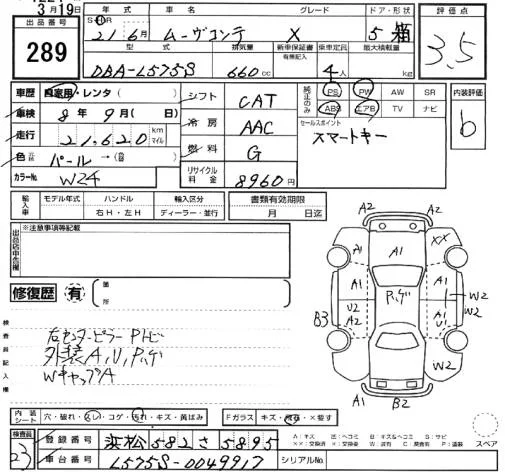 3月19日
出品番号
289
年式
車名
グレード
ドア・形状
評価点
S・H
21年6月
ムーヴコンテ
X
5 箱
3.5
型式
排気量
新車保証書
有無記入
乗車定員
最大積載量
DBA-L575S
660cc
4人
kg
車歴
自家用・レンタ( )
シフト
CAT
純正のみ
PS PW AW SR
ABS エアB TV ナビ
内装評価
b
車検
8年9月( 日)
冷房
AAC
セールスポイント
スマートキー
走行
21,620
km
マイル
燃料
G
色
パール→( )
カラーNo.
W24
リサイクル料金
8960円
輸入車
モデル年式
ハンドル
右H・左H
輸入区分
ディーラー・並行
書類有効期限
月 日迄
出品店申告欄
※注意事項等記載
修復歴
有
箇所
検査員記入欄
右センターピラーPトビ
外装A,U,Pハゲ
WキャップA
A2
A2
A1
XX
A1
Pハゲ
A1
U2
A2
A1
U
W2
W2
B3
W2
A1
B2
内装シート
穴・破れ・・コゲ・汚れ・キズ・黄ばみ
Fガラス
キズ・・×要す
スペア
A:キズ U:ヘコミ B:キズ&ヘコミ S:サビ
XX:交換済 X:交換要 W:波有 C:腐食有 P:塗装
検査員
23
登録番号
浜松582さ5895
車台番号
L575S-0049917
シリアルNo.